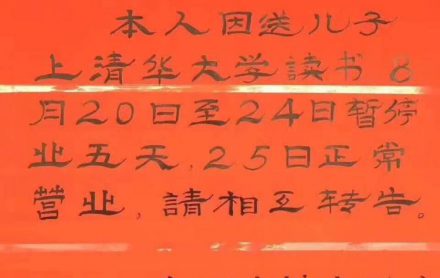 本人因送儿子
上清华大学読书8
月20日至24日暂停
业五天,25日正常
营业,請相互转告。